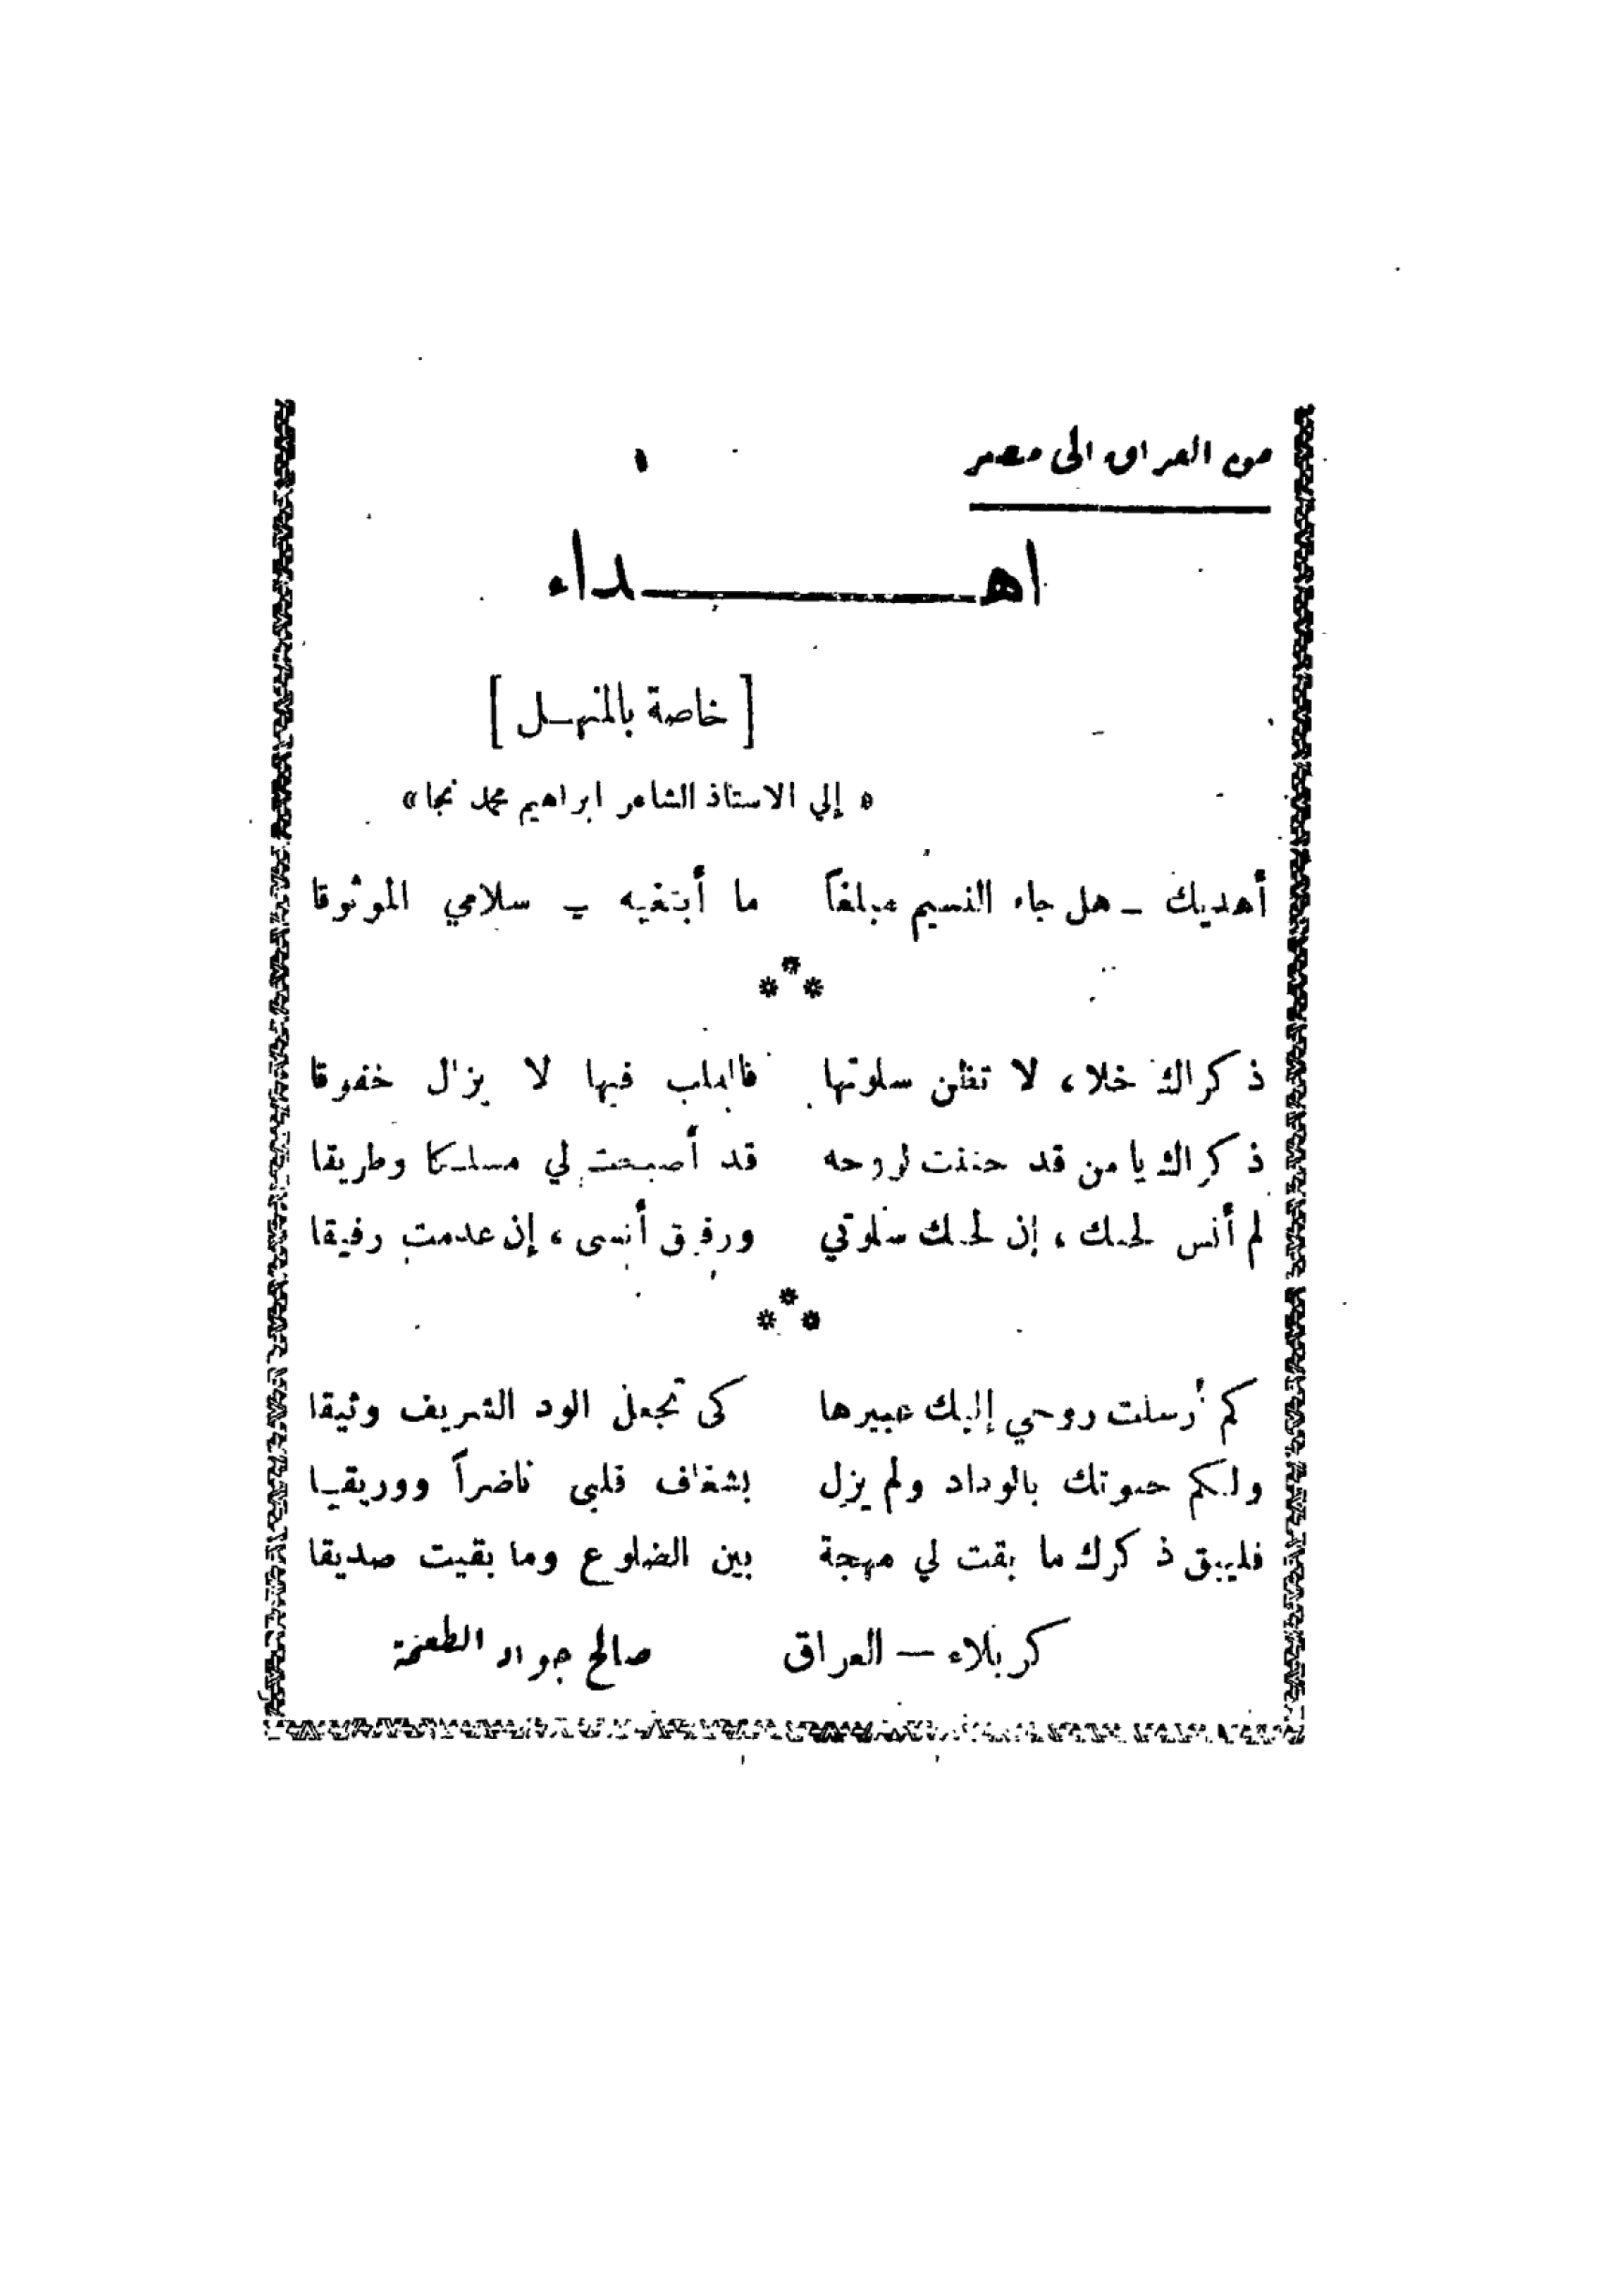 من العراق الى مصر
اهداء
[ خاصة بالمنهل ]
« إلي الاستاذ الشاعر ابراهيم محمد نجا »
أهديك ـ هل جاء النسيم مبلغاً ما أبتغيه ـ سلامي الموثوقا
***
ذكراك خلا، لا تظن سلوتها فالقلب فيها لا يزال خفوقا
ذكراك يا من قد حننت لروحه قد أصبحت لي مسلكا وطريقا
لم أنس لحنك، إن لحنك سلوتي ورفيق أنسى، إن عدمت رفيقا
***
كم أرسلت روحي إليك عبيرها كى تجعل الود الشريف وثيقا
ولكم حبوتك بالوداد ولم يزل بشغاف قلبى ناضراً ووريقا
فليبق ذكرك ما بقت لي مهجة بين الضلوع وما بقيت صديقا
كربلاء — العراق صالح جواد الطعمة